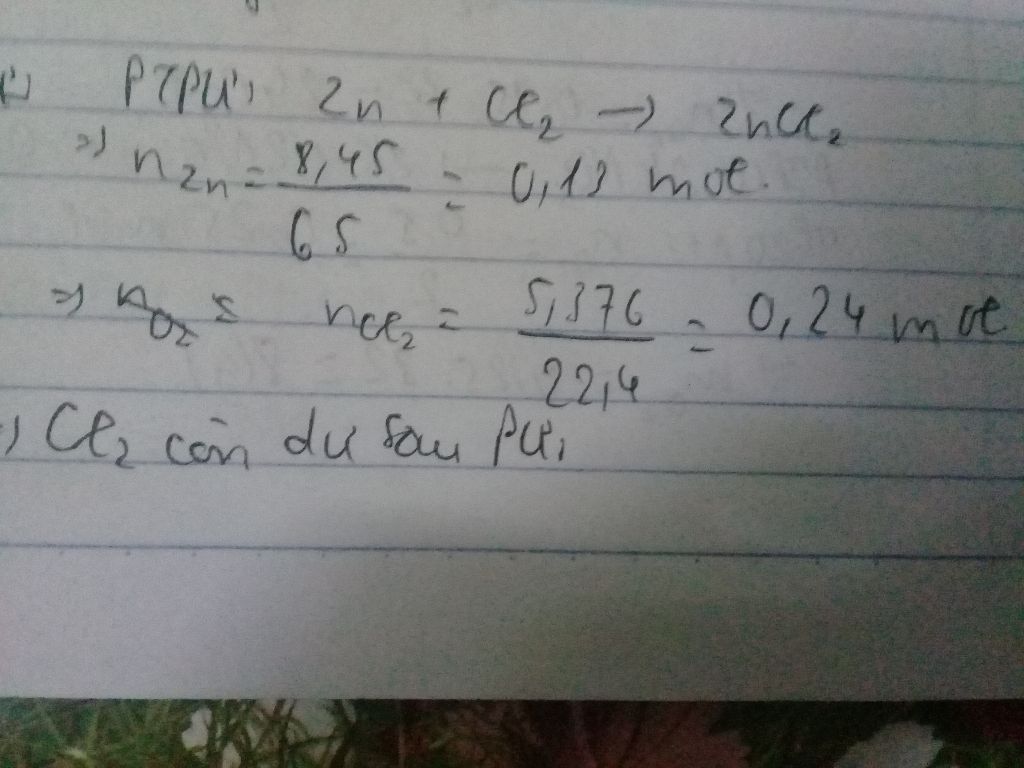 PTPƯ: Zn + Cl₂ → ZnCl₂
=> nZn = 8,45/65 = 0,13 mol.
=> nCl₂ = 5,376/22,4 = 0,24 mol
=> Cl₂ còn dư sau PƯ.